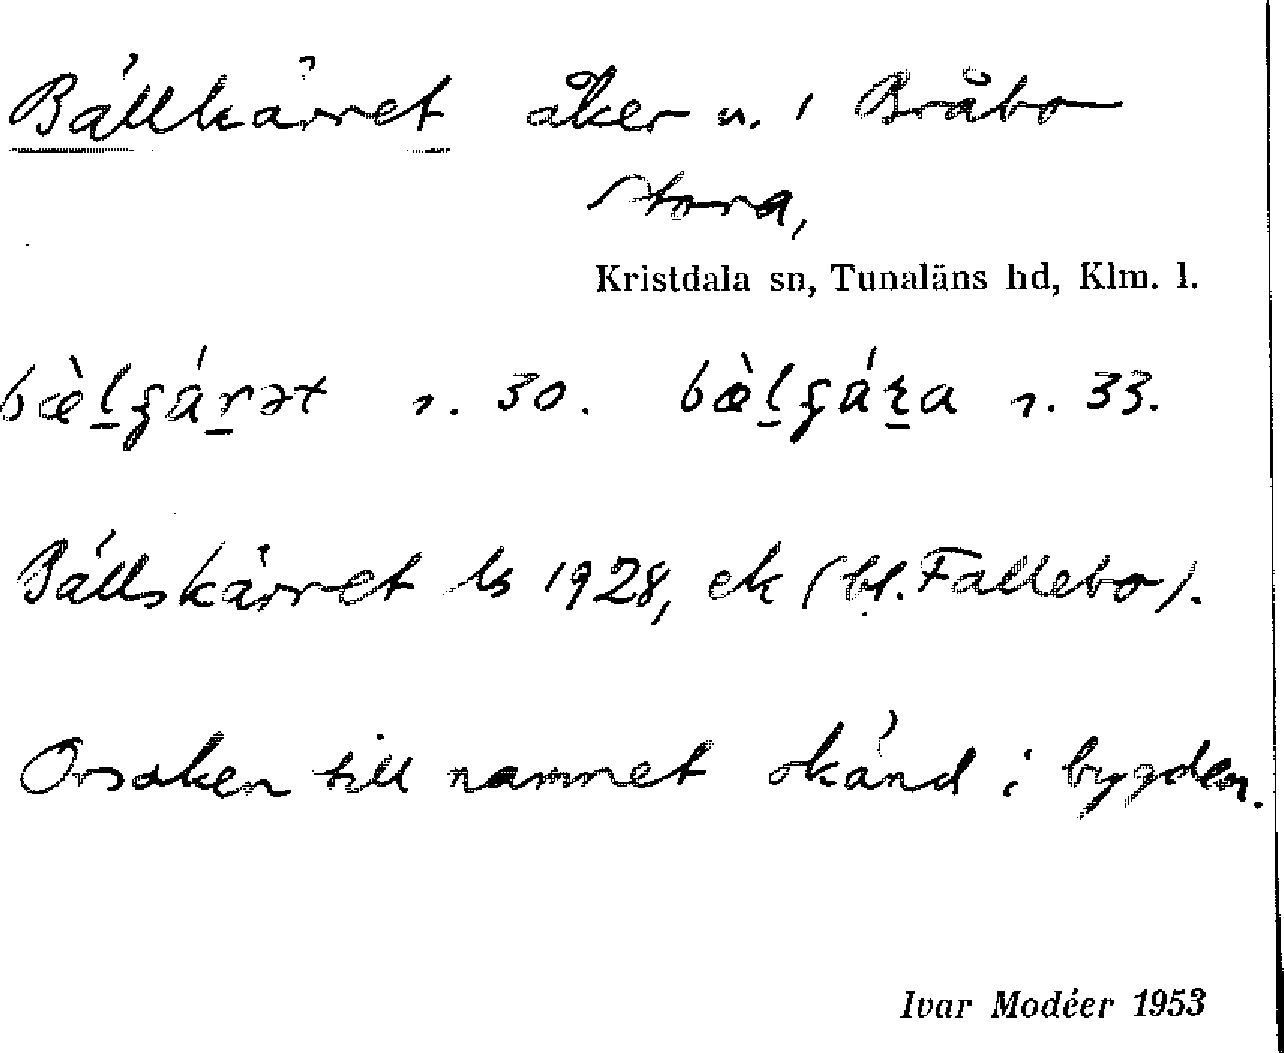 Bällkärret åker n. i Bråbo
Stora,
Kristdala sn, Tunaläns hd, Klm. l.
bæ̀l̲ɕár̲ət r. 30. bæ̀l̲ɕár̲a r. 33.
Bällskärret ls 1928, ek (bl. Fallebo).
Orsaken till namnet okänd i bygden.
Ivar Modéer 1953